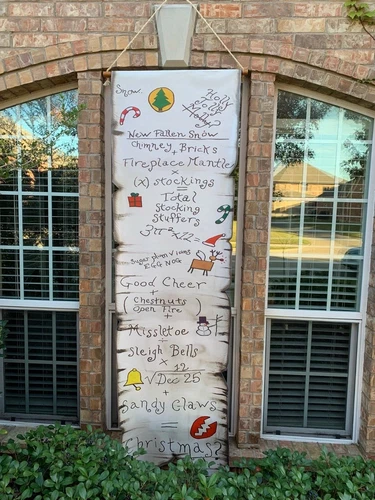 Snow
Holly
Jolly
New Fallen Snow
Chimney, Bricks
Fireplace Mantle
x
(x) stockings
=
Total
Stocking
Stuffers
3πr²x12=
sugar plum visions
EGG NOG
Good Cheer
+
(Chestnuts
Open Fire)
+
Missletoe
÷
Sleigh Bells
x 12
√Dec 25
+
Sandy Claws
=
Christmas?